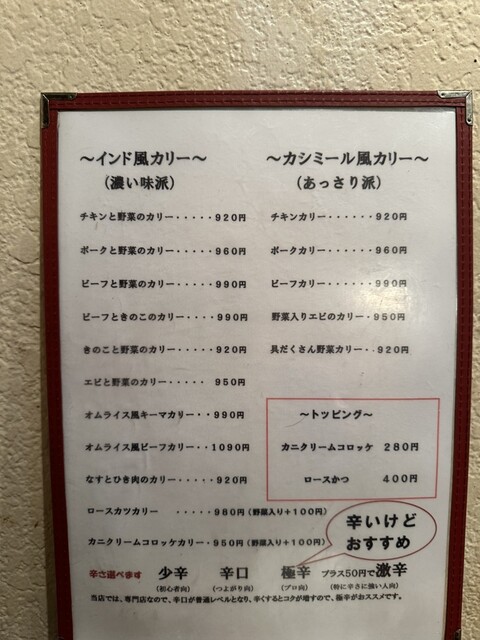 ～インド風カリー～
（濃い味派）
チキンと野菜のカリー・・・・・920円
ポークと野菜のカリー・・・・・960円
ビーフと野菜のカリー・・・・・990円
ビーフときのこのカリー・・・・990円
きのこと野菜のカリー・・・・・920円
エビと野菜のカリー・・・・・ 950円
オムライス風キーマカリー・・990円
オムライス風ビーフカリー・・1090円
なすとひき肉のカリー・・・・・920円
ロースカツカリー ・・・・・980円（野菜入り＋100円）
カニクリームコロッケカリー・950円（野菜入り＋100円）
～カシミール風カリー～
（あっさり派）
チキンカリー・・・・・・920円
ポークカリー・・・・・・960円
ビーフカリー・・・・・・990円
野菜入りエビのカリー・950円
具だくさん野菜カリー・・920円
～トッピング～
カニクリームコロッケ 280円
ロースかつ 400円
辛いけど
おすすめ
辛さ選べます 少辛 辛口 極辛 プラス50円で激辛
（初心者向） （つよがり向） （プロ向） （特に辛さに強い人向）
当店では、専門店なので、辛口が普通レベルとなり、辛くするとコクが増すので、極辛がおススメです。